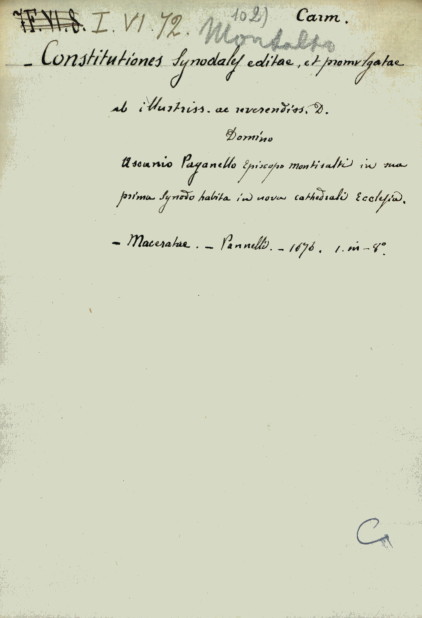 7.F.VI.8. I. VI. 72. 102) Carm.
Montalto
- Constitutiones Synodales editae, et promulgatae
ab illustriss. ac reverendiss. D.
Domino
Ascanio Paganello Episcopo montisalti in sua
prima Synodo habita in nova cathedrali Ecclesia.
- Maceratae. - Pannelli. - 1676. 1. in-8º.